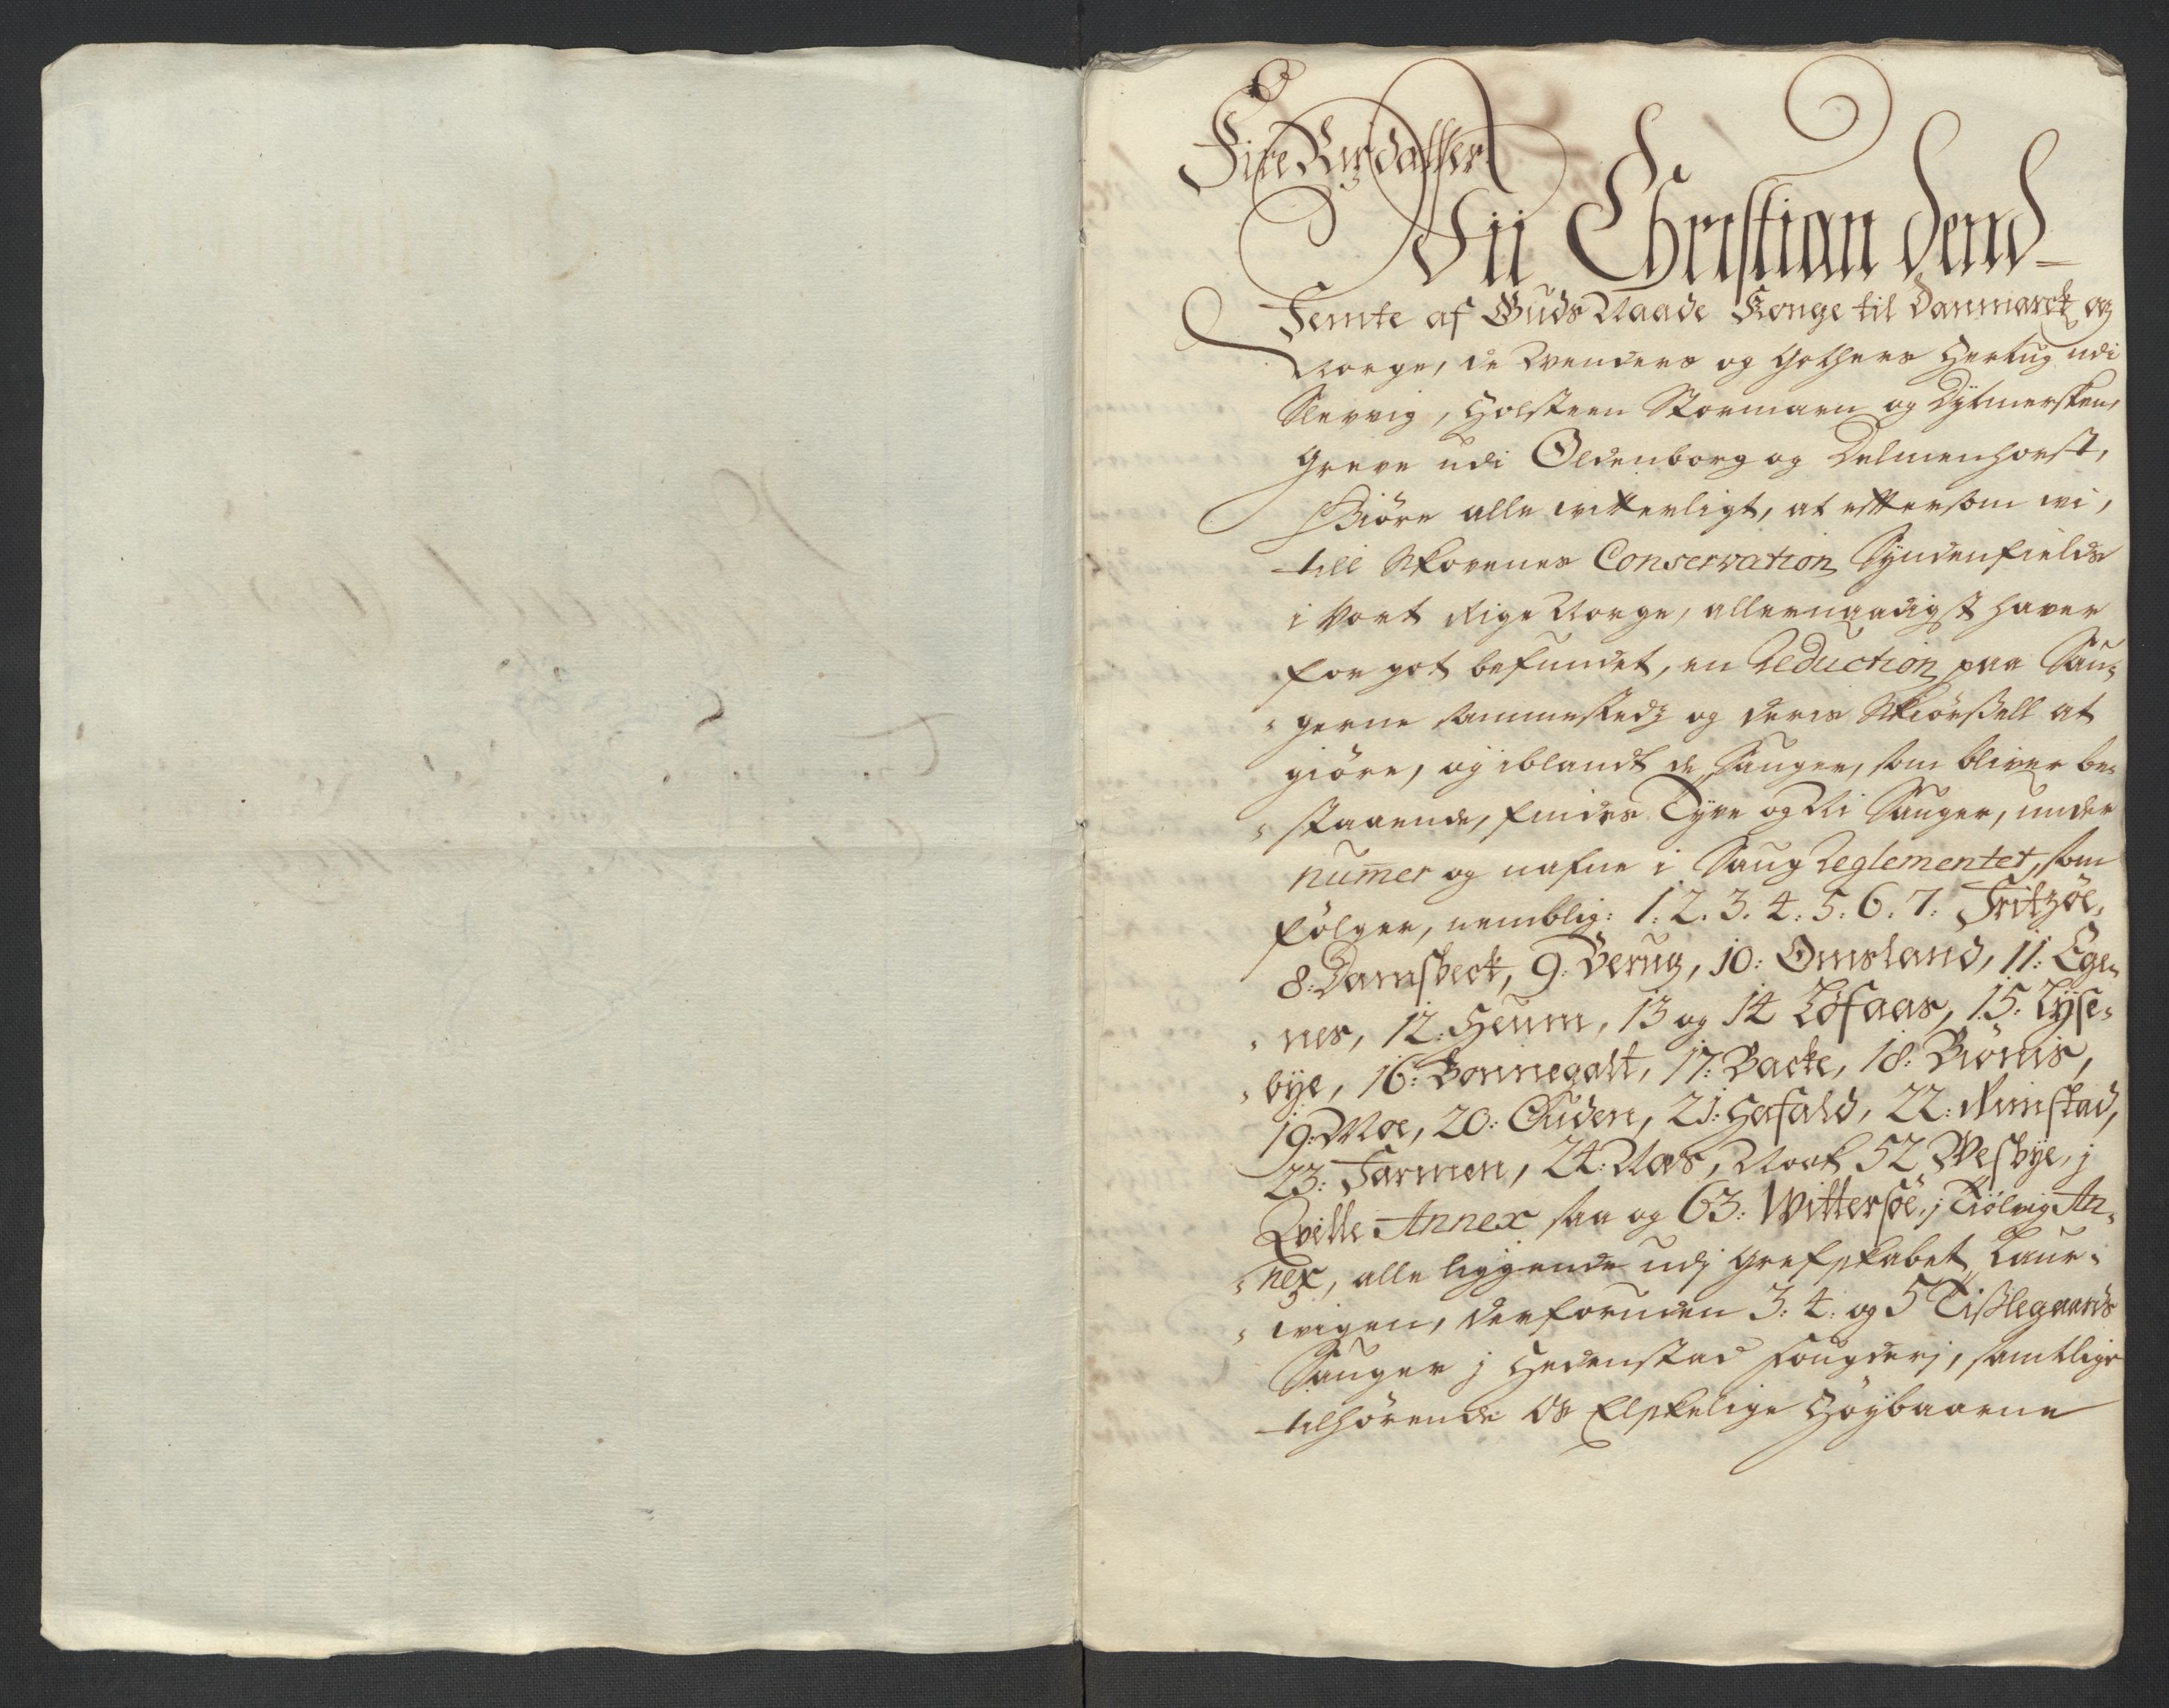 Fire Rixdaller
Vii Christian dend
Femte af Guds Naade Konge til Danmarck og
Norge, de Wenders og Gothers Hertug udi
Slesvig, Holsteen Stormarn og Dytmersken,
Greve udi Oldenborg og Delmenhorst,
Giöre alle witterligt, at eftersom wi,
till Skovenes Conservation Syndenfields
i Vort Rige Norge, allernaadigst haver
for got befundet, en Reduction paa Sau-
gerne sammestedz og deris Skiörsell at
giöre, og iblandt de Sauger, som bliver be-
staaende, findes Tyve og Ni Sauger, under
numer og nafne i Saug Reglementet, som
fölger, nemblig: 1. 2. 3. 4: 5: 6. 7: Fritzöe,
8: Damsbeck, 9: Berug, 10: Omsland, 11: Ege-
nes, 12: Heum, 13 og 14 Löfaas, 15: Lyse-
bye, 16: Bonnegalt, 17: Backe, 18: Biönis,
19: Moe, 20: Ouden, 21: Hafald, 22: Rimstad,
23: Farmen, 24: Næs, Nock 52 Wesbye, j
Qville Annex saa og 63: Wittersöe, j Tiölling An-
nex, alle liggende udj Grefskabet Laur-
wigen, derforuden 3: 4: og 5 Tisslegaards
Sauger j Hedenstad Fougderj, samtlige
tilhörende Os Elskelige Höybaarne